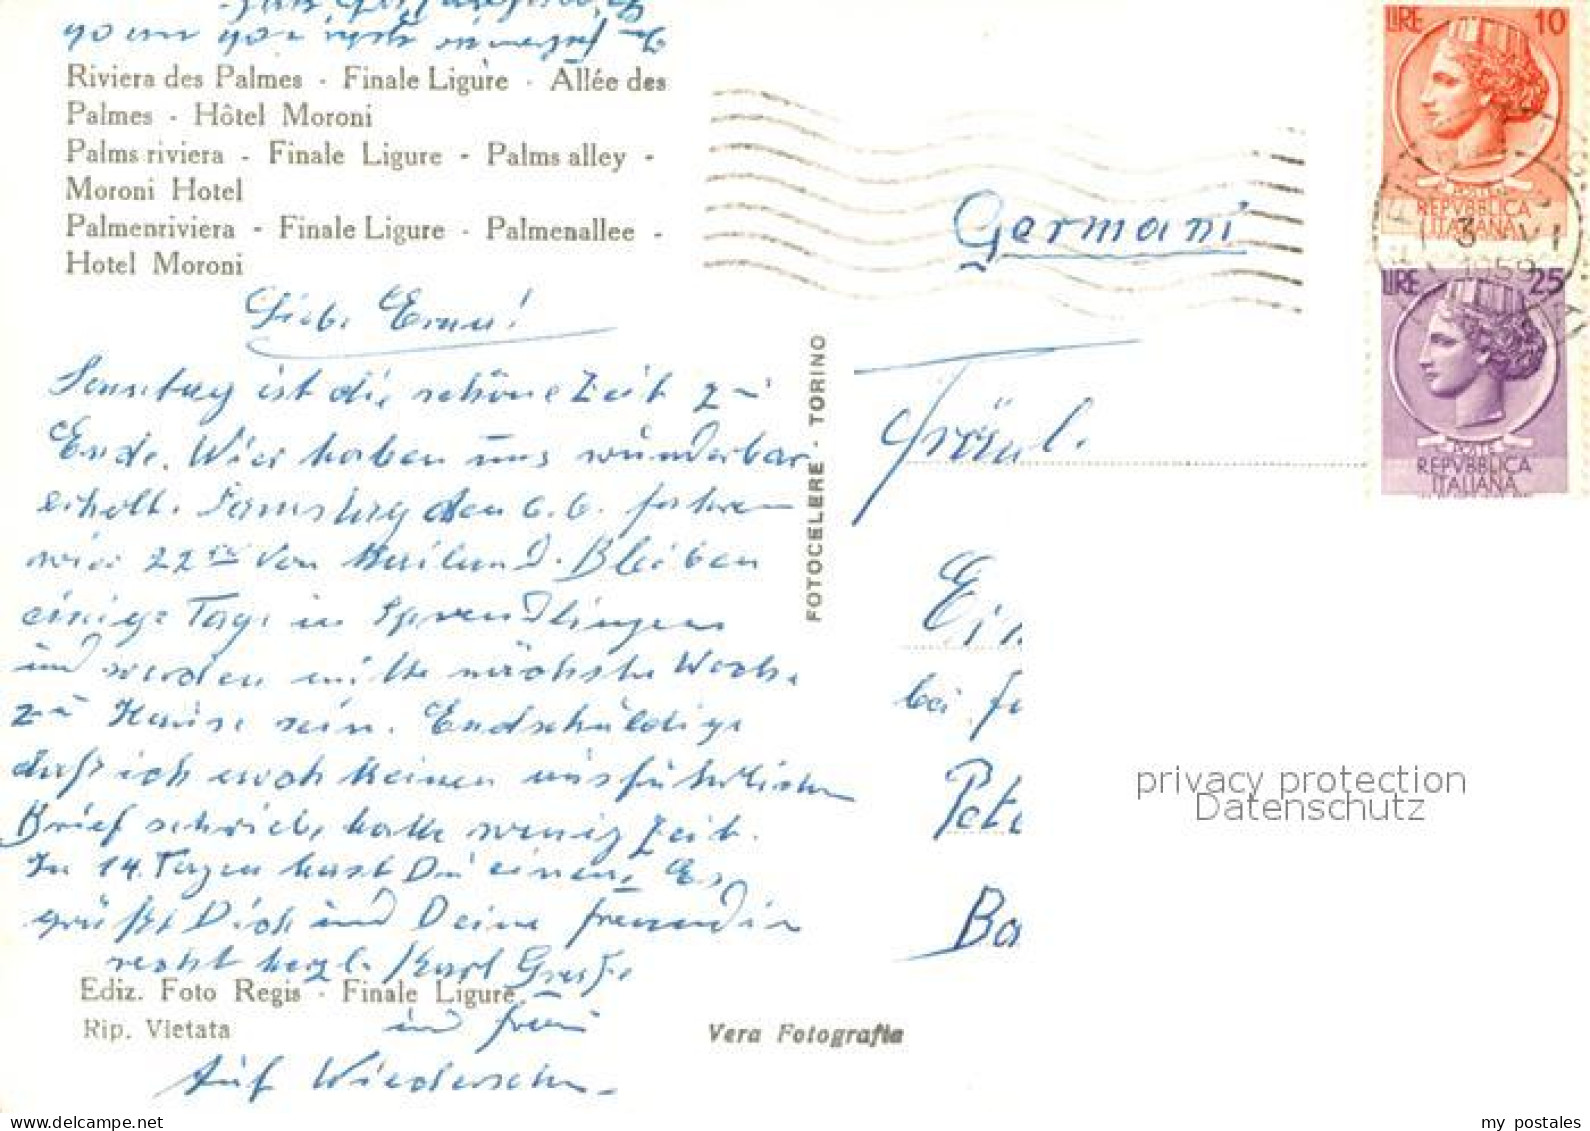 Riviera des Palmes - Finale Ligure - Allée des
Palmes - Hôtel Moroni
Palms riviera - Finale Ligure - Palms alley -
Moroni Hotel
Palmenriviera - Finale Ligure - Palmenallee -
Hotel Moroni
Liebe Erna!
Sonntag ist die schöne Zeit zu
Ende. Wier haben uns wunderbar
erholt. Samstag den 6.6. fahren
wier 22 von Mailand. Bleiben
einige Tage in Sprendlingen
und werden mitte nächste Woche
zu Hause sein. Endschuldige
daß ich euch keinen ausführlichen
Brief schrieb, hatte wenig Zeit.
In 14. Tagen hast Du einen. Es
grüßt Dich und Deine Freundin
recht herzl. Karl
und Frau
Auf Wiedersehn
Ediz. Foto Regis - Finale Ligure
Rip. Vietata
Vera Fotografia
FOTOCELERE - TORINO
Germani
Fräul.
Ein
bei
Pete
Ba
LIRE 10
POSTE
REPVBBLICA
ITALIANA
3 VI
1959
LIRE 25
POSTE
REPVBBLICA
ITALIANA
privacy protection
Datenschutz
my_postales